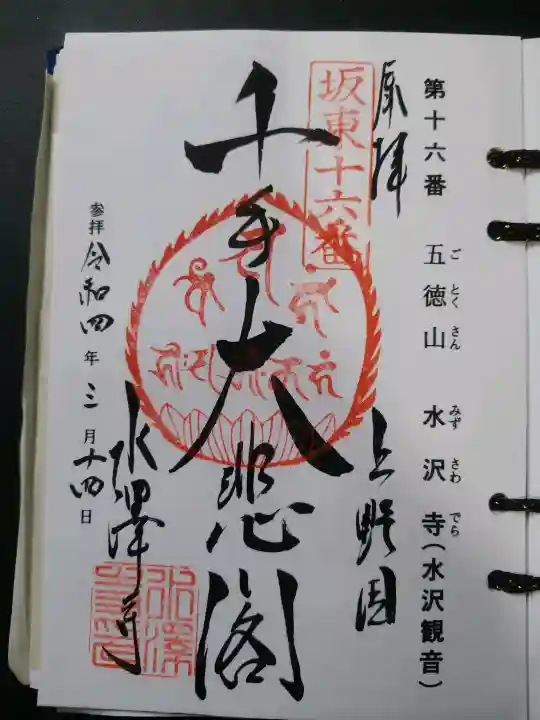 第十六番 五徳山 水沢寺(水沢観音)
ごとくさん みずさわでら
奉拝
上野国
坂東十六番
千手大悲閣
水澤寺
参拝 令和四年三月十四日